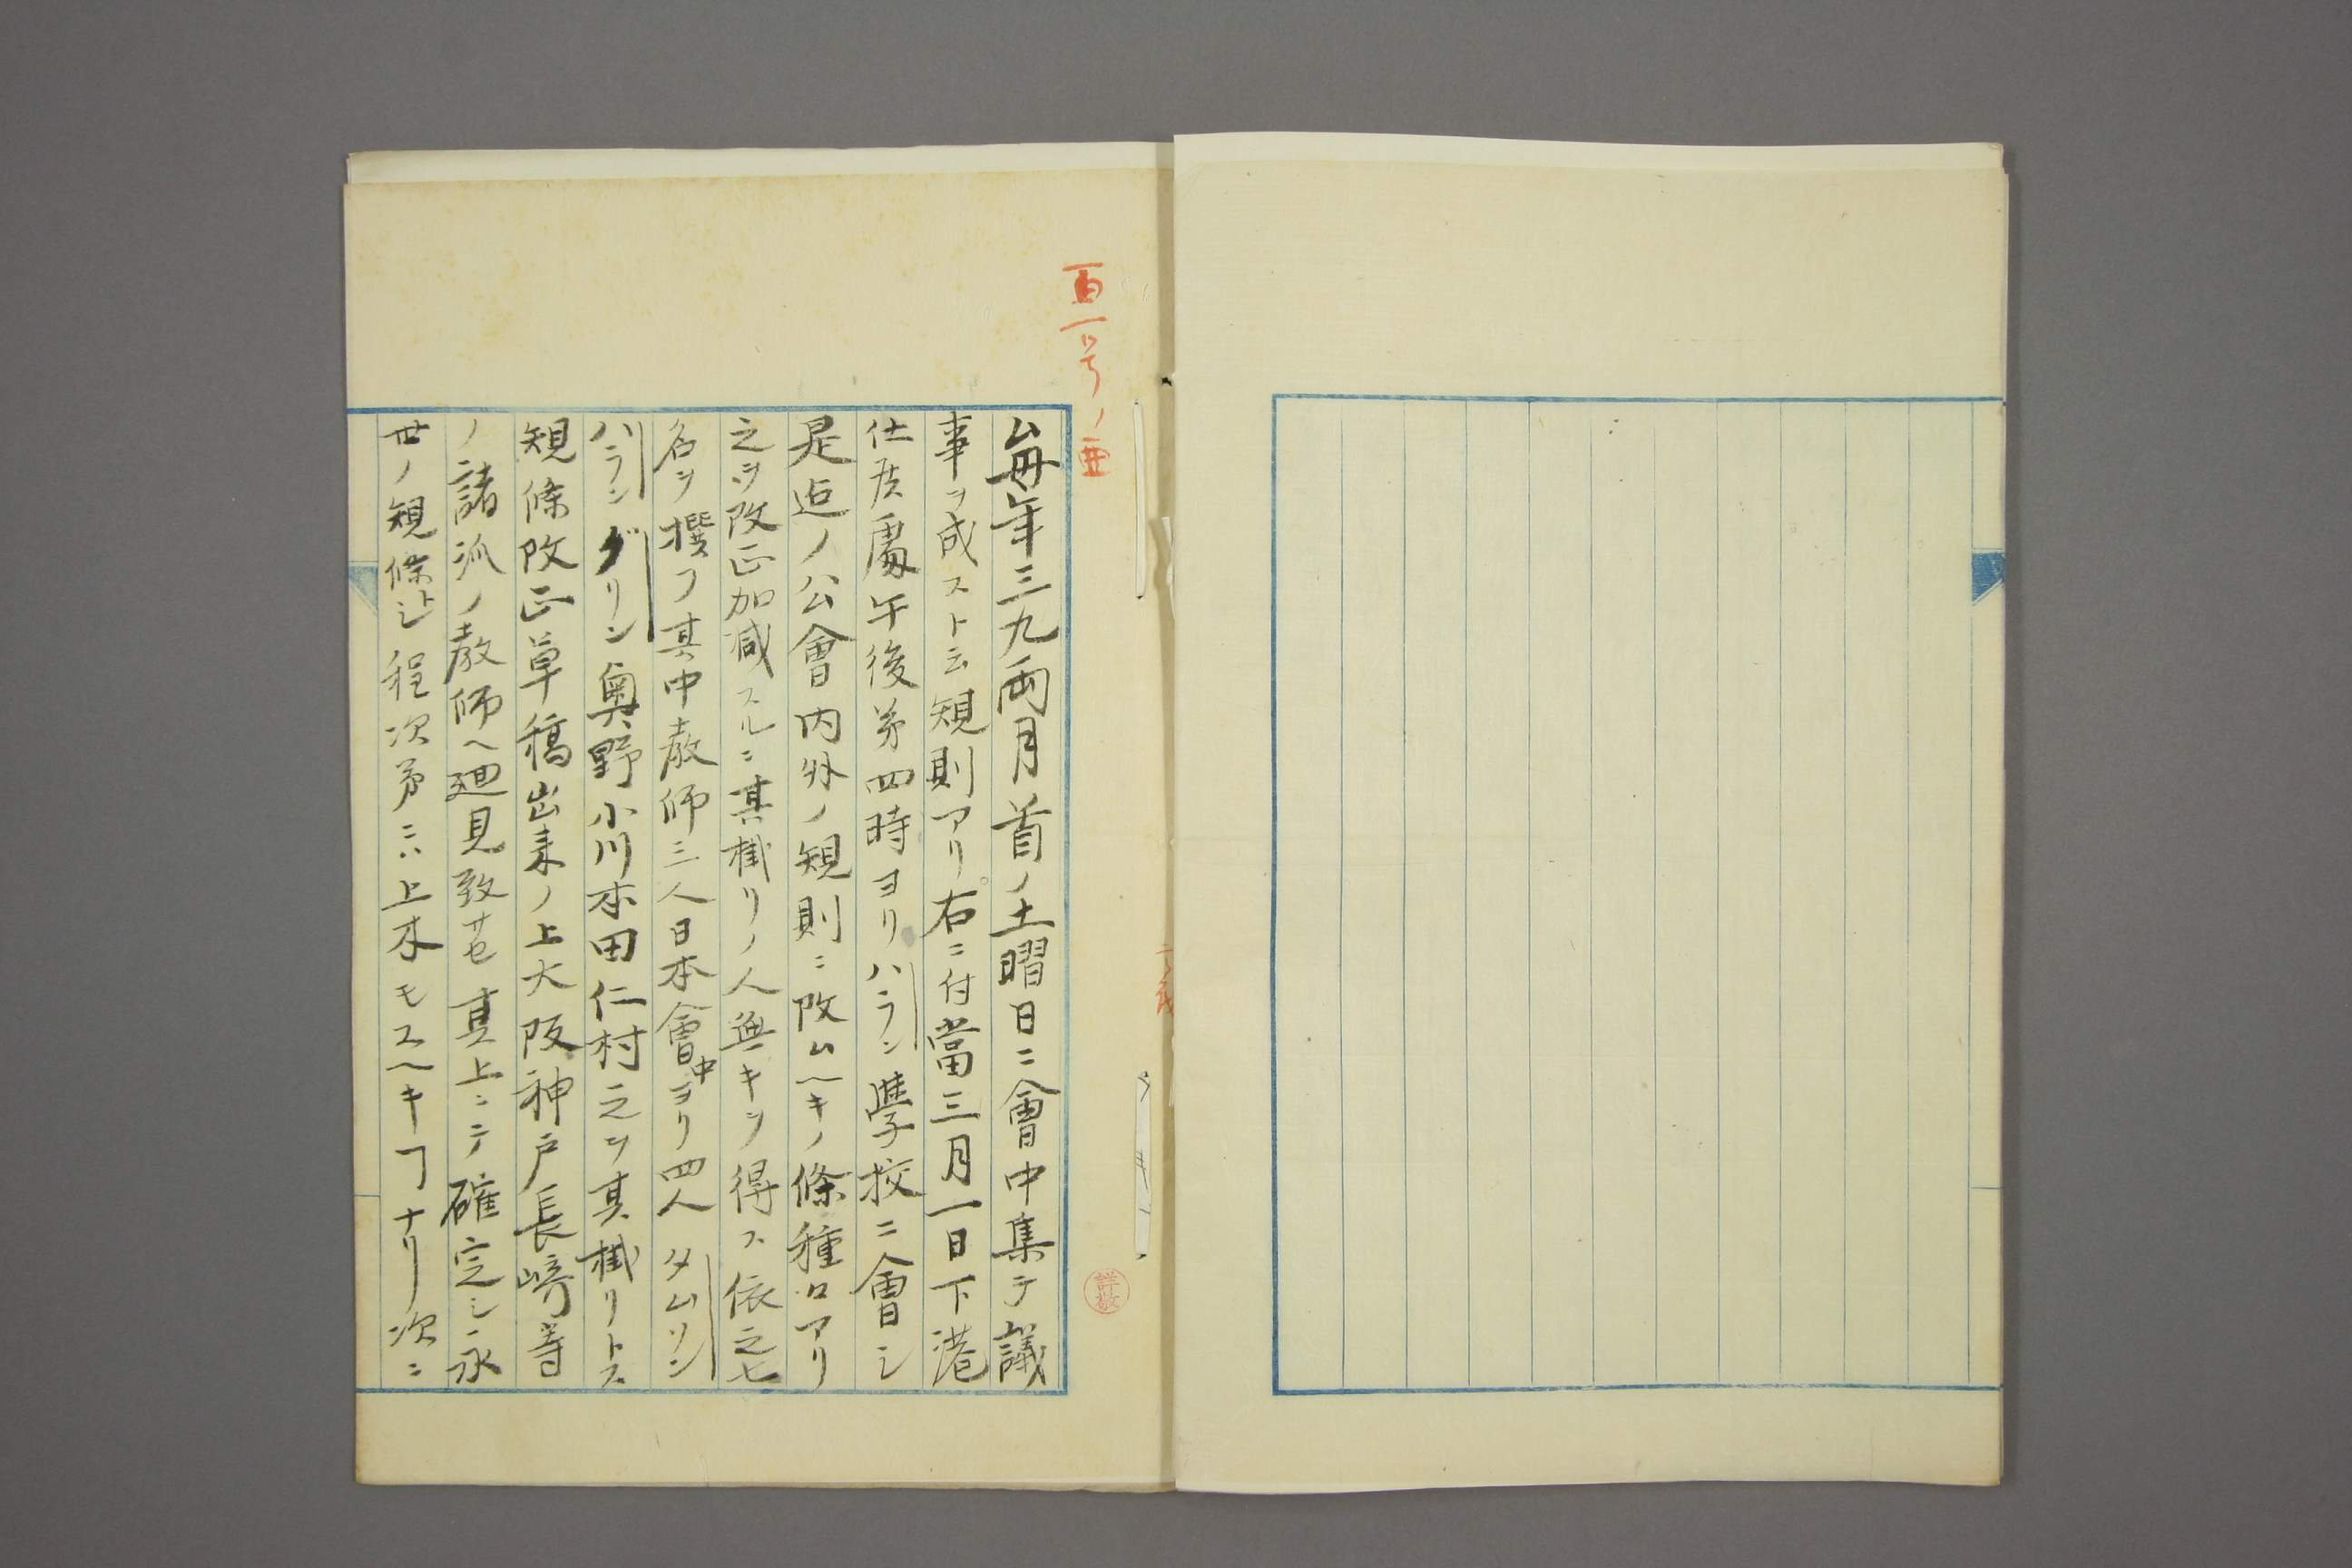 百一号ノ亜
毎年三九両月首ノ土曜日ニ會中集テ議
事ヲ成スト云規則アリ右ニ付當三月一日下港
仕候處午後第四時ヨリハラン學校ニ會シ
是迠ノ公會内外ノ規則ニ改ムヘキノ條種々アリ
之ヲ改正加減スルニ其掛リノ人無キヲ得ス依之七
名ヲ撰フ其中教師三人日本會中ヨリ四人タムソン
ハランダリン奥野小川本田仁村之ヲ其掛リトス
規條改正草稿出来ノ上大阪神戸長崎等
ノ諸派ノ教師ヘ廻見致セ其上ニテ確定シ永
世ノ規條トシ程次第ニハ上木モスヘキヿナリ次ニ
詳敬